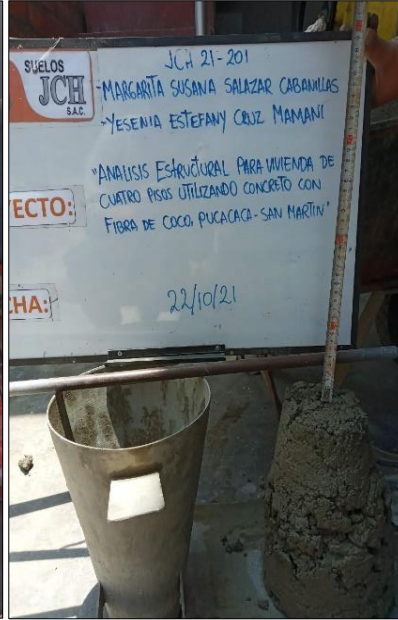 JCH 21-201
SUELOS
JCH
S.A.C.
-MARGARITA SUSANA SALAZAR CABANILLAS
-YESENIA ESTEFANY CRUZ MAMANI
"ANALISIS ESTRUCTURAL PARA VIVIENDA DE
CUATRO PISOS UTILIZANDO CONCRETO CON
FIBRA DE COCO, PUCACACA-SAN MARTIN"
ECTO:
HA:
22/10/21